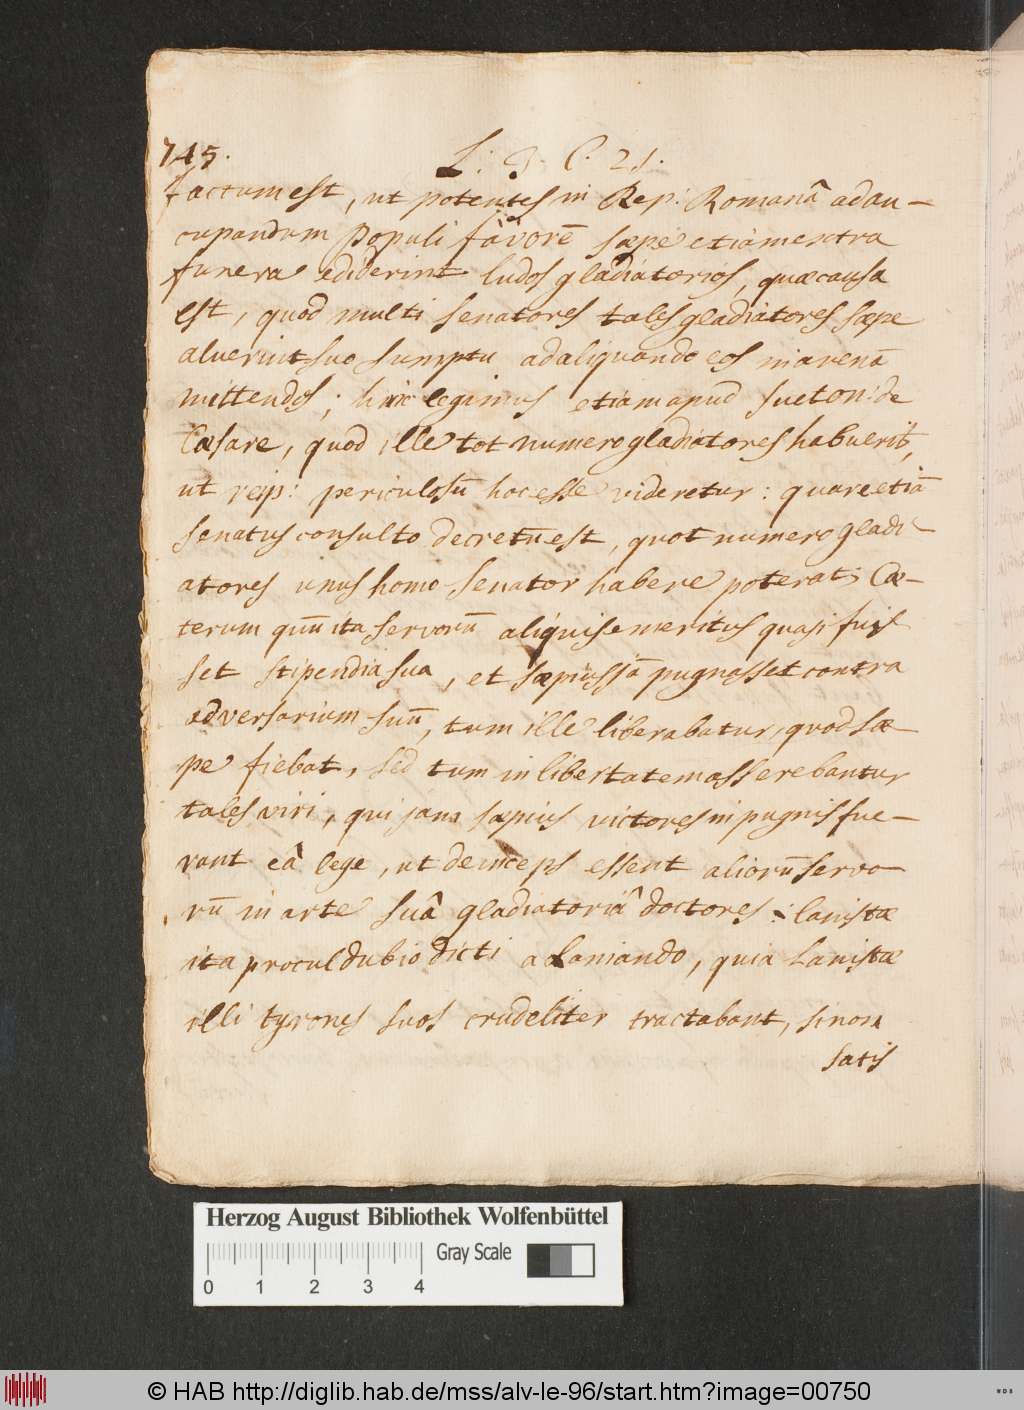 745.
L: 3. C. 21.
factum est, ut potentes in Rep: Romanâ ad au-
cupandum Populi favorē sæpe etiam extra
funera ediderint ludos gladiatorios, quæ causa
est, quod multi senatores tales gladiatores sæpe
aluerint suo sumptu ad aliquando eos in arenā
mittendos; hinc legimus etiam apud Sueton: de
Cæsare, quod ille tot numero gladiatores habuerit,
ut reip: periculosū hoc esse videretur: quare etiā
senatus consulto decretū est, quot numero gladi-
atores unus homo senator habere poterat; Cæ-
terum quū ita servorū aliquis emeritus quasi fuis
set stipendia sua, et sæpius jā pugnasset contra
adversarium suū, tum ille liberabatur, quod sæ-
pe fiebat, sed tum in libertatem asserebantur
tales viri, qui jam sæpius victores in pugnis fue-
rant eâ lege, ut deinceps essent aliorū servo
rū in arte suâ gladiatoriâ doctores: lanistæ
ita procul dubio dicti a laniando, quia Lanistæ
illi tyrones suos crudeliter tractabant, si non
satis
Herzog August Bibliothek Wolfenbüttel
Gray Scale
0 1 2 3 4
© HAB http://diglib.hab.de/mss/alv-le-96/start.htm?image=00750